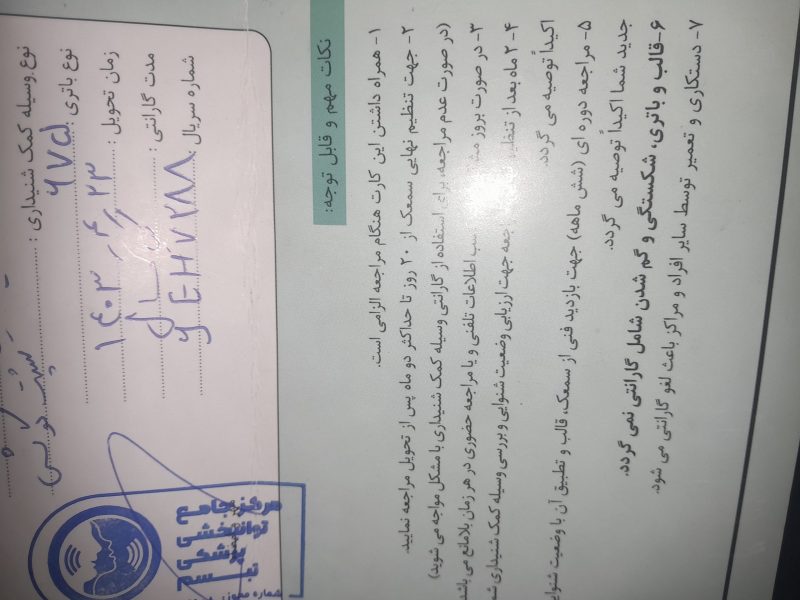 نوع وسیله کمک شنیداری :
نوع باتری : ۶۷۵
زمان تحویل : ۱۴۰۳
مدت گارانتی :
شماره سریال :
مرکز جامع
توانبخشی
پزشکی
تبسم
شماره مجوز
نکات مهم و قابل توجه:
۱- همراه داشتن این کارت هنگام مراجعه الزامی است.
۲- جهت تنظیم نهایی سمعک از ۲۰ روز تا حداکثر دو ماه پس از تحویل مراجعه نمایید.
(در صورت عدم مراجعه، برای استفاده از گارانتی وسیله کمک شنیداری با مشکل مواجه می شوید)
۳- در صورت بروز اطلاعات تلفنی و یا مراجعه حضوری در هر زمان بلامانع می باشد
۴- ۲ ماه بعد از جهت ارزیابی وضعیت شنوایی و بررسی وسیله کمک شنیداری
اکیداً توصیه می گردد.
۵- مراجعه دوره ای (شش ماهه) جهت بازدید فنی از سمعک، قالب و تطبیق آن با وضعیت شنوایی
جدید شما اکیداً توصیه می گردد.
۶-قالب و باتری، شکستگی و گم شدن شامل گارانتی نمی گردد.
۷- دستکاری و تعمیر توسط سایر افراد و مراکز باعث لغو گارانتی می شود.